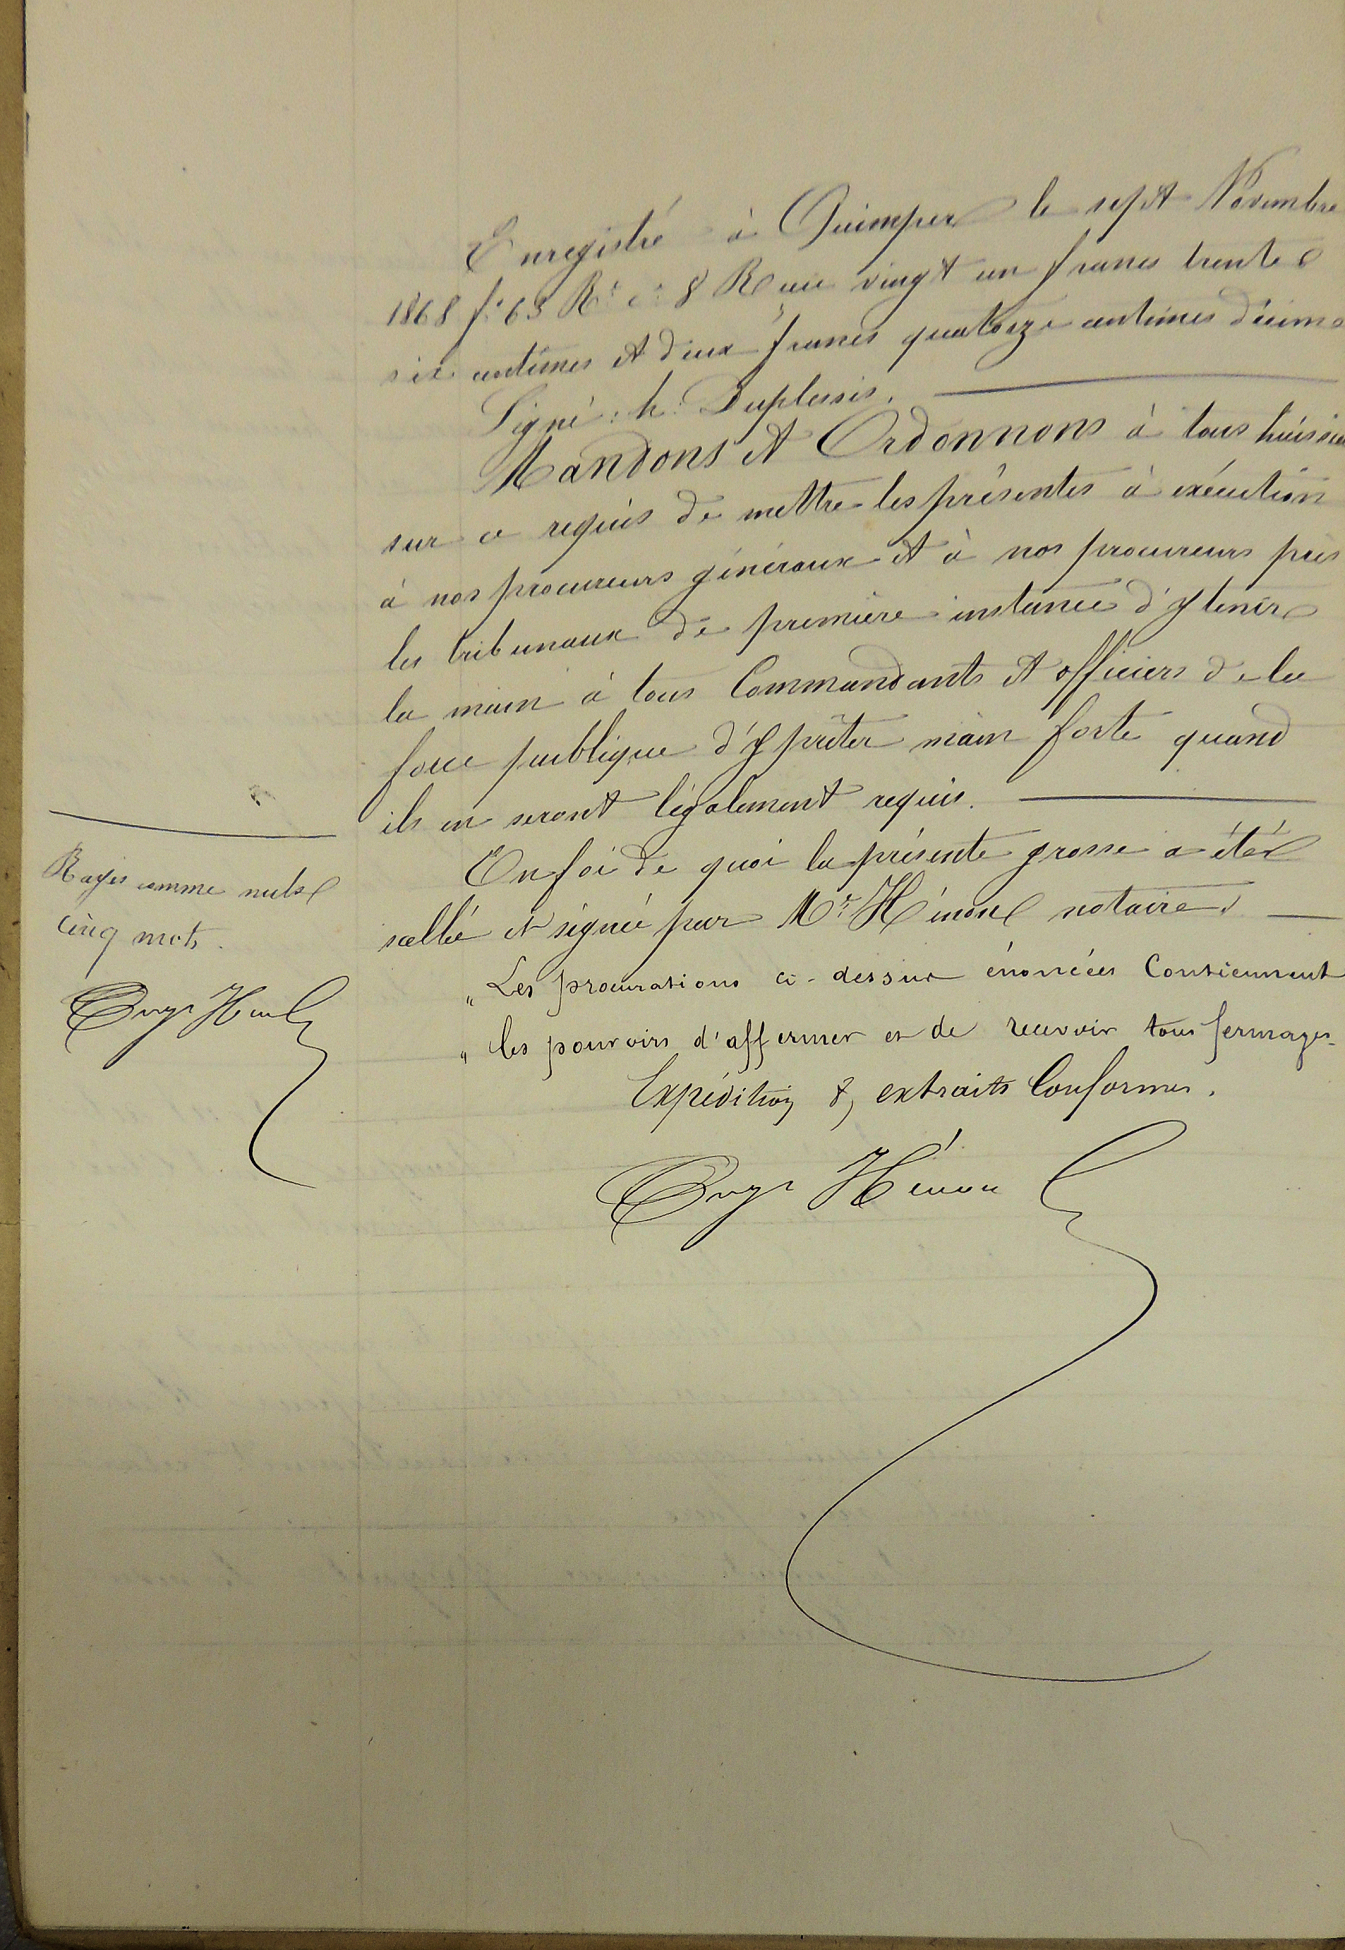 Enregistré à Quimper le sept Novembre
1868 f° 63 R° c° 8 Reçu vingt un francs trente
six centimes et deux francs quatorze centimes décime
Signé : h. Duplessis.
Mandons et Ordonnons à tous huissiers
sur ce requis de mettre les présentes à exécution
à nos procureurs généraux et à nos procureurs près
les tribunaux de première instance d'y tenir
la main à tous Commandants et officiers de la
force publique d'y prêter main forte quand
ils en seront légalement requis.
En foi de quoi la présente grosse a été
scellé et signée par Me Hémon notaire.
Rayés comme nuls
cinq mots.
" Les procurations ci-dessus énoncées Contiennent
" les pouvoirs d'affermer et de recevoir tous fermages.
Expédition & extraits Conformes.
Hémon